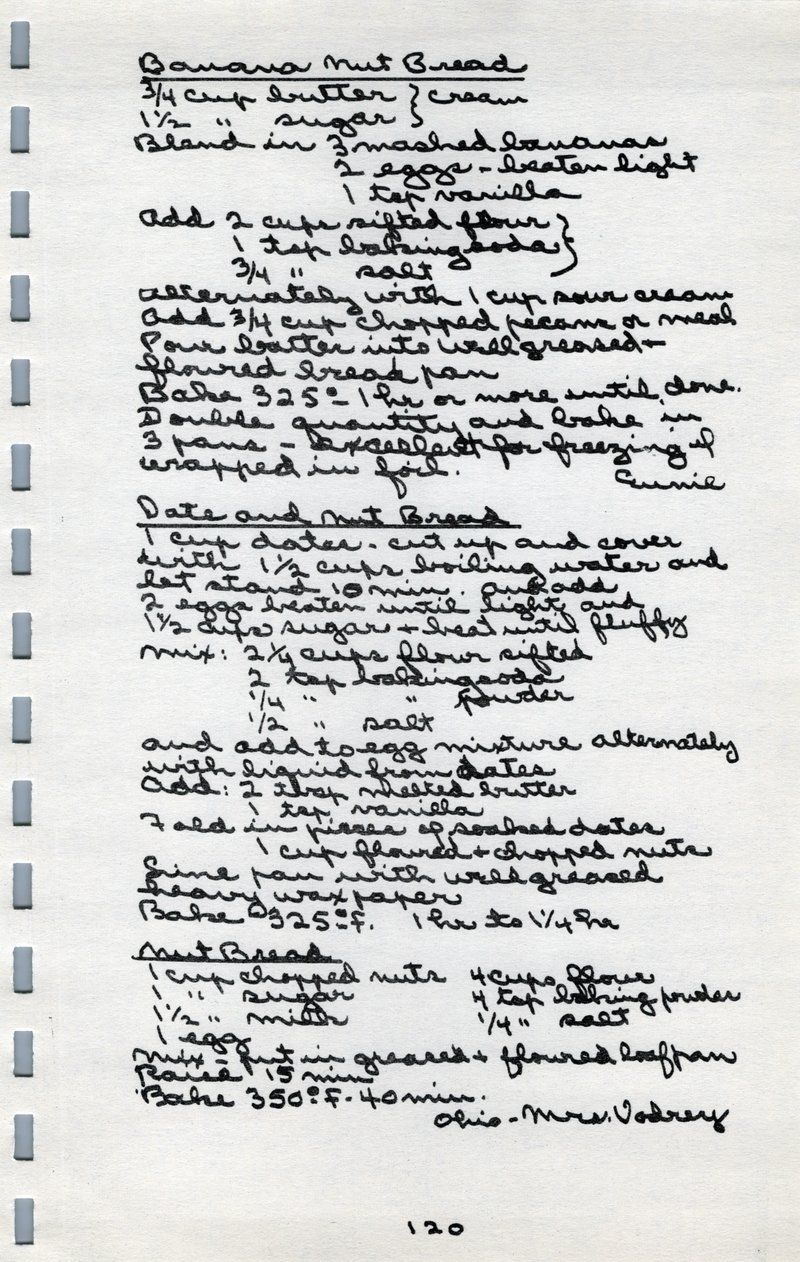 Banana Nut Bread
3/4 cup butter } cream
1 1/2 " sugar }
Blend in 3 mashed bananas
2 eggs - beaten light
1 tsp vanilla
Add 2 cups sifted flour }
1 tsp baking soda }
3/4 " salt
alternately with 1 cup sour cream
Add 3/4 cup chopped pecans or meal
Pour batter into well greased +
floured bread pan
Bake 325° - 1 hr or more until done.
Double quantity and bake in
3 pans - excellent for freezing if
wrapped in foil.
Eunie
Date and Nut Bread
1 cup dates - cut up and cover
with 1 1/2 cups boiling water and
let stand 10 min. and add
2 eggs beaten until light and
1 1/2 cups sugar + beat until fluffy
Mix: 2 1/4 cups flour sifted
2 tsp baking soda
1/4 " " powder
1/2 " salt
and add to egg mixture alternately
with liquid from dates
Add: 2 tbsp melted butter
1 tsp vanilla
Fold in pieces of soaked dates
1 cup floured + chopped nuts
Line pan with well greased
heavy wax paper
Bake @ 325° F. 1 hr to 1 1/4 hr
Nut Bread
1 cup chopped nuts 4 cups flour
1 " sugar 4 tsp baking powder
1 1/2 " milk 1/4 " salt
1 egg
Mix - put in greased + floured loaf pan
Raise 15 min
Bake 350° F - 40 min.
Ohio - Mrs. Vodrey
120